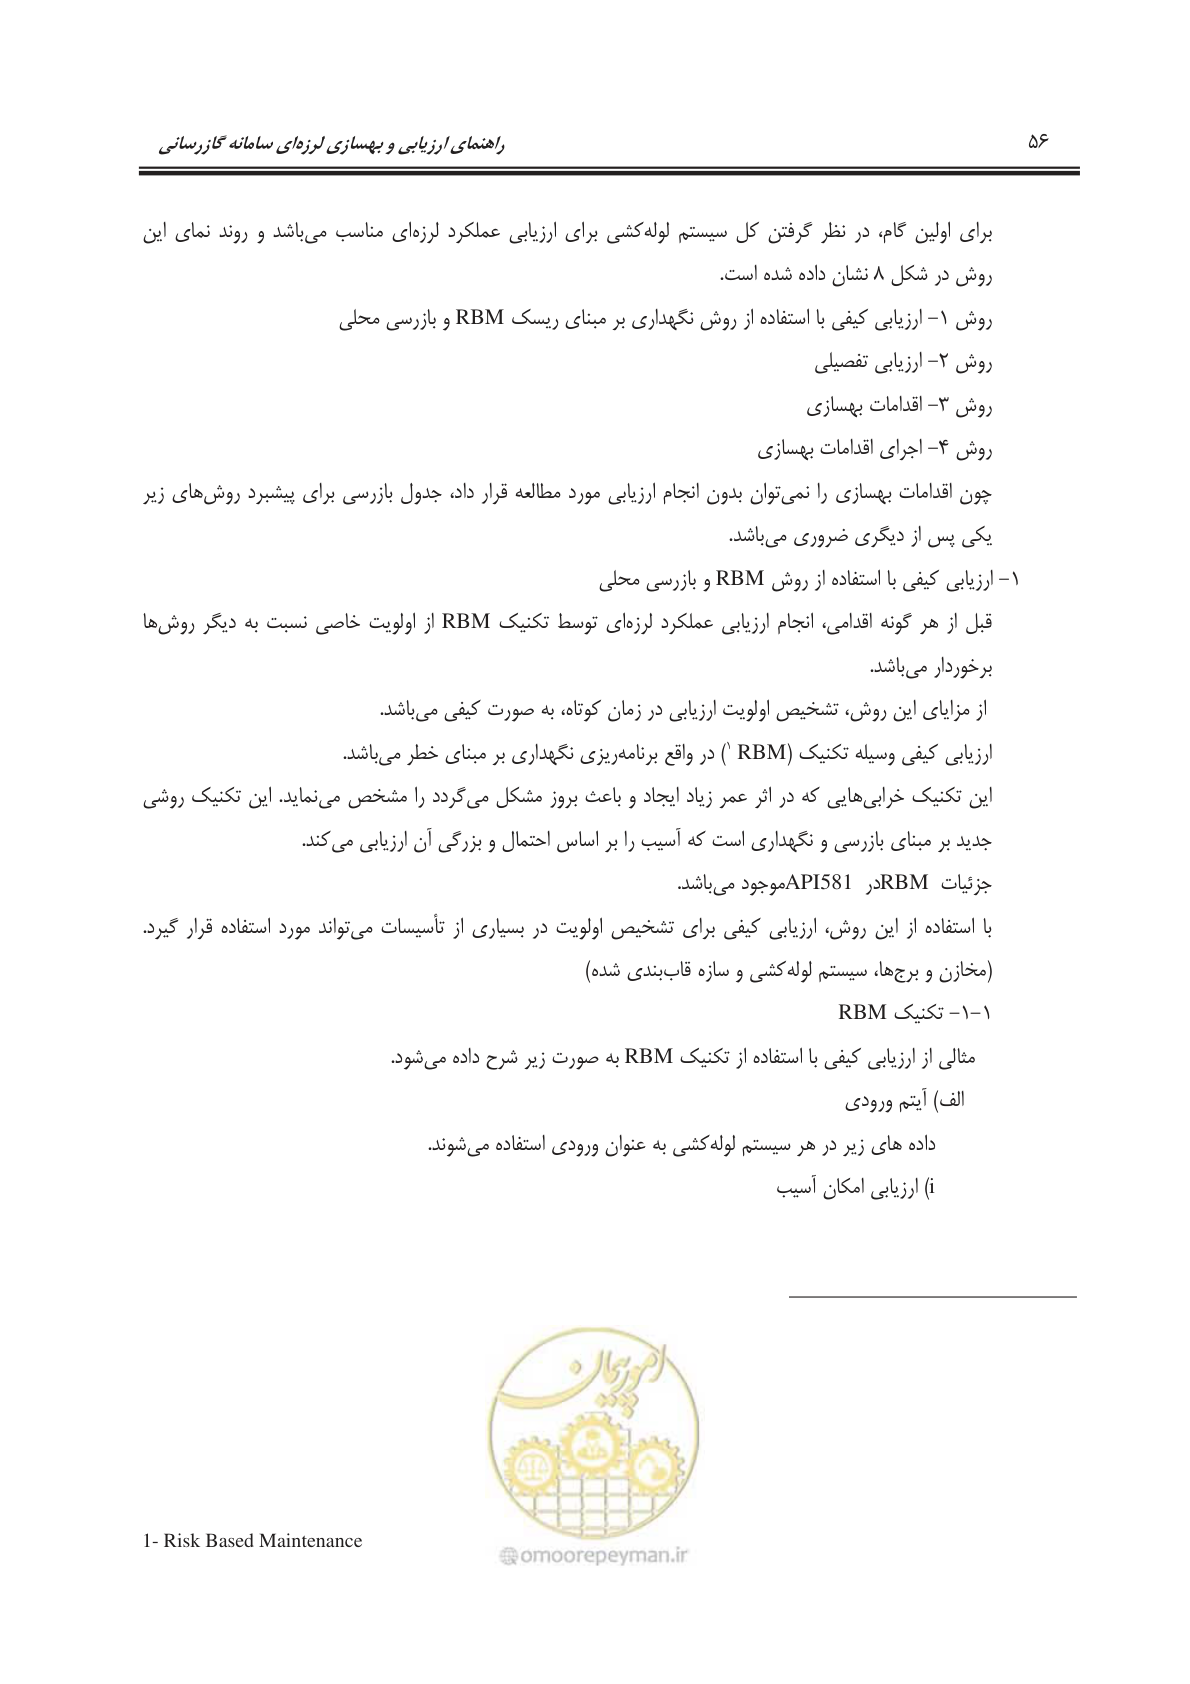 ۵۶
راهنمای ارزیابی و بهسازی لرزه‌ای سامانه گازرسانی
برای اولین گام، در نظر گرفتن کل سیستم لوله‌کشی برای ارزیابی عملکرد لرزه‌ای مناسب می‌باشد و روند نمای این
روش در شکل ۸ نشان داده شده است.
روش ۱– ارزیابی کیفی با استفاده از روش نگهداری بر مبنای ریسک RBM و بازرسی محلی
روش ۲– ارزیابی تفصیلی
روش ۳– اقدامات بهسازی
روش ۴– اجرای اقدامات بهسازی
چون اقدامات بهسازی را نمی‌توان بدون انجام ارزیابی مورد مطالعه قرار داد، جدول بازرسی برای پیشبرد روش‌های زیر
یکی پس از دیگری ضروری می‌باشد.
۱– ارزیابی کیفی با استفاده از روش RBM و بازرسی محلی
قبل از هر گونه اقدامی، انجام ارزیابی عملکرد لرزه‌ای توسط تکنیک RBM از اولویت خاصی نسبت به دیگر روش‌ها
برخوردار می‌باشد.
از مزایای این روش، تشخیص اولویت ارزیابی در زمان کوتاه، به صورت کیفی می‌باشد.
ارزیابی کیفی وسیله تکنیک (RBM ۱) در واقع برنامه‌ریزی نگهداری بر مبنای خطر می‌باشد.
این تکنیک خرابی‌هایی که در اثر عمر زیاد ایجاد و باعث بروز مشکل می‌گردد را مشخص می‌نماید. این تکنیک روشی
جدید بر مبنای بازرسی و نگهداری است که آسیب را بر اساس احتمال و بزرگی آن ارزیابی می‌کند.
جزئیات RBMدر API581موجود می‌باشد.
با استفاده از این روش، ارزیابی کیفی برای تشخیص اولویت در بسیاری از تأسیسات می‌تواند مورد استفاده قرار گیرد.
(مخازن و برج‌ها، سیستم لوله‌کشی و سازه قاب‌بندی شده)
۱–۱– تکنیک RBM
مثالی از ارزیابی کیفی با استفاده از تکنیک RBM به صورت زیر شرح داده می‌شود.
الف) آیتم ورودی
داده های زیر در هر سیستم لوله‌کشی به عنوان ورودی استفاده می‌شوند.
i) ارزیابی امکان آسیب
امور پیمان
1- Risk Based Maintenance
@omoorepeyman.ir